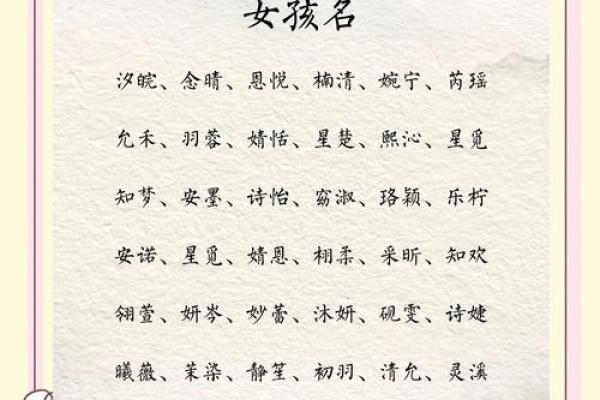 女孩名
汐皖、念晴、恩悦、楠清、婉宁、芮瑶
允禾、羽蓉、婧恬、星楚、熙沁、星觅
知梦、安墨、诗怡、窈淑、珞颖、乐柠
安诺、星觅、婧恩、栩柔、采昕、知欢
翎萱、妍岑、妙蕾、沐妍、砚雯、诗婕
曦薇、茉染、静笙、初羽、清允、灵溪